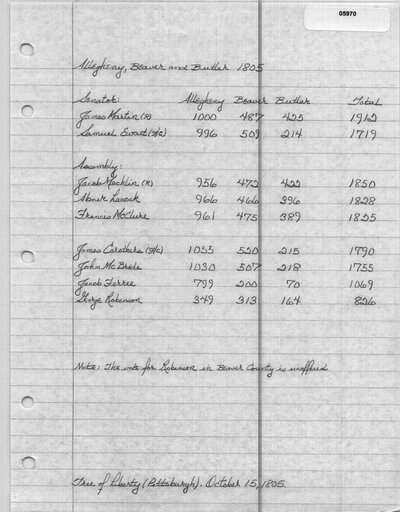 05970
Allegheny, Beaver and Butler 1805
Senator: Allegheny Beaver Butler Total
James Martin (R) 1000 487 425 1912
Samuel Ewart (F/C) 996 509 214 1719
Assembly:
Jacob Mechlin (R) 956 472 422 1850
Abner Lacock 966 466 396 1828
Francis McClure 961 475 389 1825
James Carothers (F/C) 1055 520 215 1790
John McBride 1030 507 218 1755
Jacob Ferree 799 200 70 1069
George Robinson 349 313 164 826
Note: The vote for Robinson in Beaver County is
Tree of Liberty (Pittsburgh). October 15, 1805.